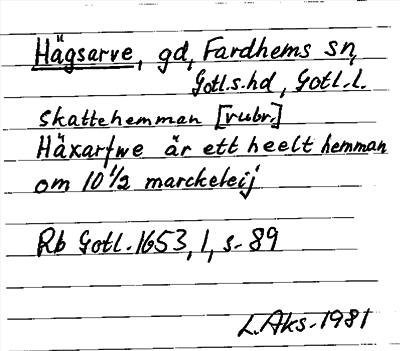 Hägsarve, gd, Fardhems sn,
Gotl.s.hd, Gotl.l.
Skattehemman [rubr.]
Häxarfwe är ett heelt hemman
om 10 1/2 marckeleij
Rb Gotl. 1653, 1, s. 89
L.Aks. 1981